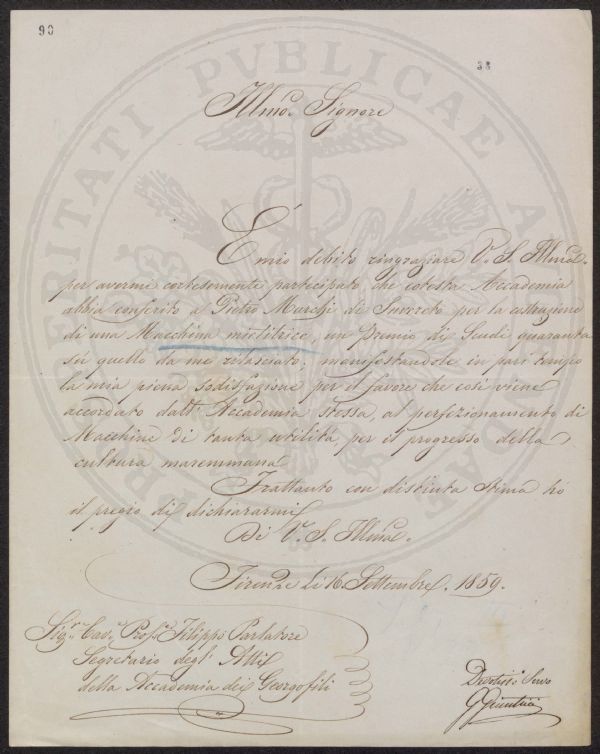 90
38
Illmo. Signore
È mio debito ringraziare V. S. Illma.
per avermi cortesemente partecipato, che cotesta Accademia
abbia conferito a Pietro Marchi di Suvereto per la costruzione
di una Macchina mietitrice, un premio di Scudi quaranta
su quello da me rilasciato; manifestandole in pari tempo
la mia piena sodisfazione per il favore che così viene
accordato dall' Accademia stessa, al perfezionamento di
Macchine di tanta utilità, per il progresso della
cultura maremmana
Frattanto con distinta stima ho
il pregio di dichiararmi
Di V. S. Illma.
Firenze li 16. Settembre 1859.
Sigr. Cave. Profre. Filippo Parlatore
Segretario degl' Atti
della Accademia dei Georgofili
Devotiss: Servo
PUBLICAE